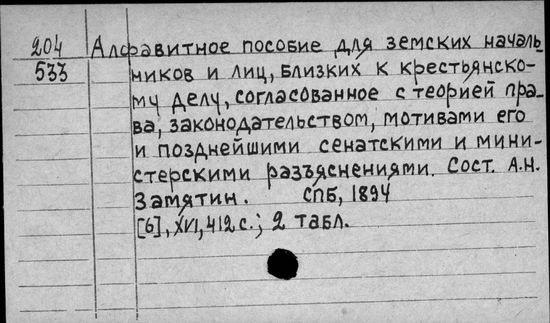 204 Алфавитное пособие для земских началь-
533 ников и лиц, близких к крестьянско-
му делу, согласованное с теорией пра-
ва, законодательством, мотивами его
и позднейшими сенатскими и мини-
стерскими разъяснениями. Сост. А.Н.
Замятин. СПБ, 1894
[6], XVI, 412 с.; 2 табл.